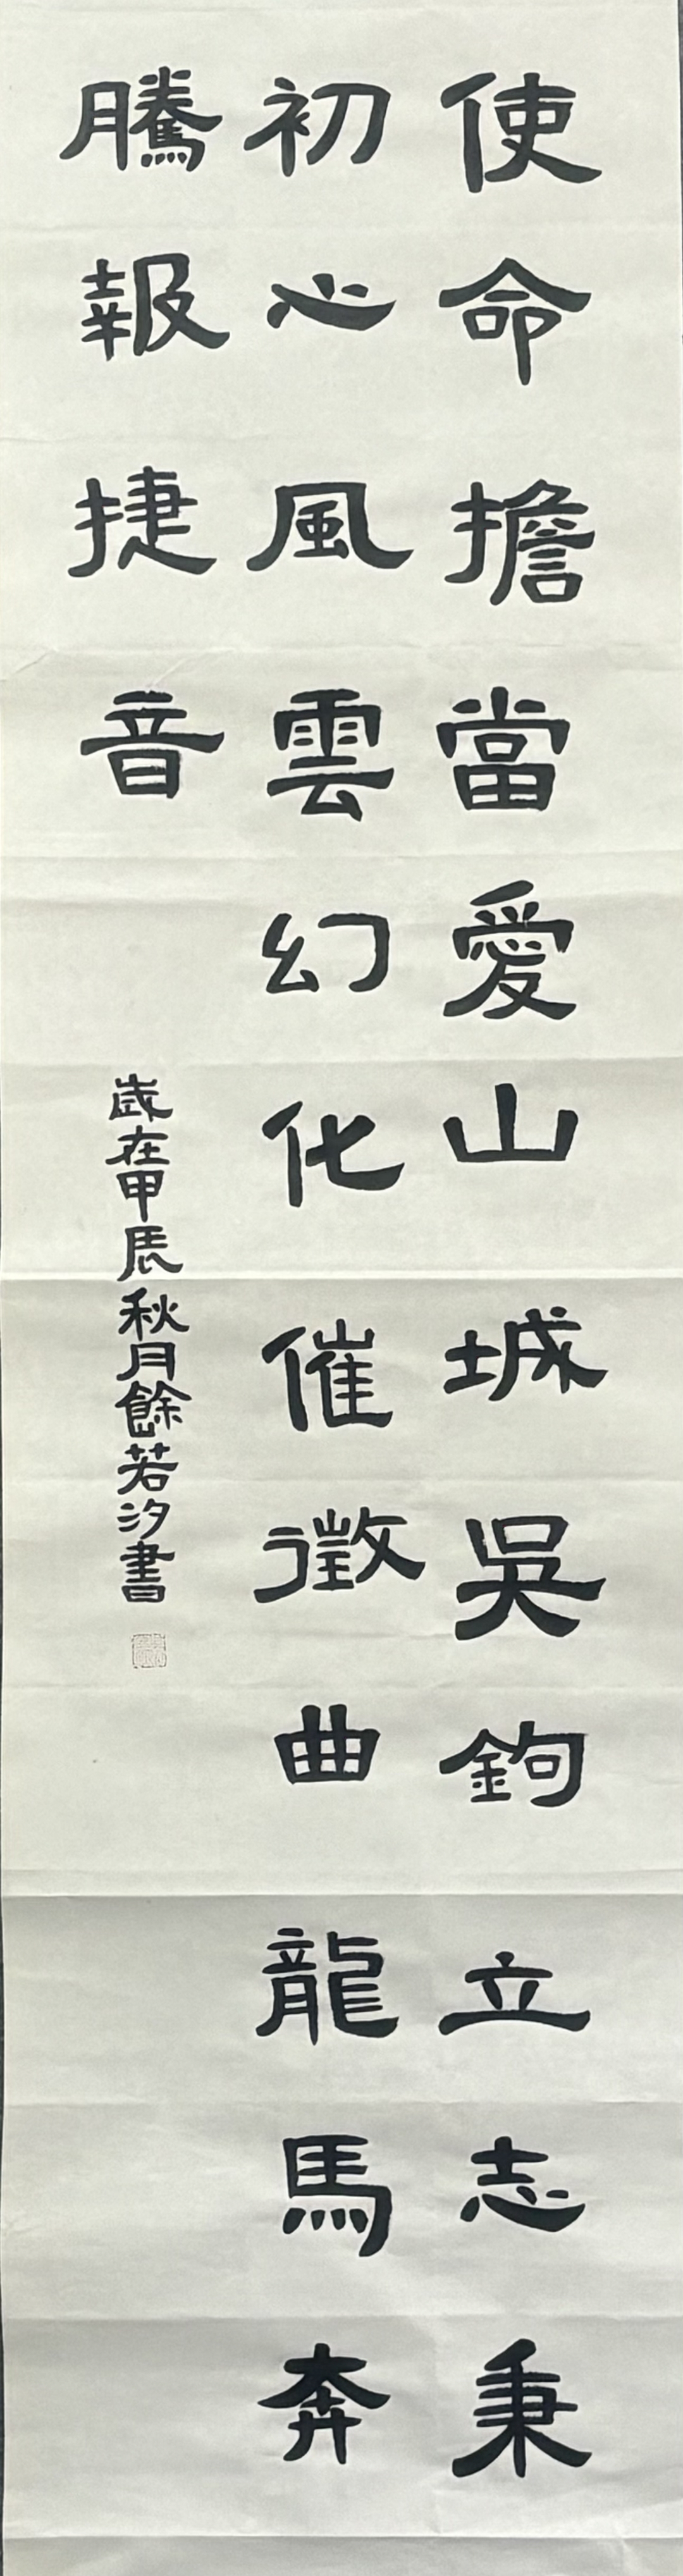 使命擔當愛山城吳鉤立志秉
初心風雲幻化催徵曲龍馬奔
騰報捷音
歲在甲辰秋月餘若汐書